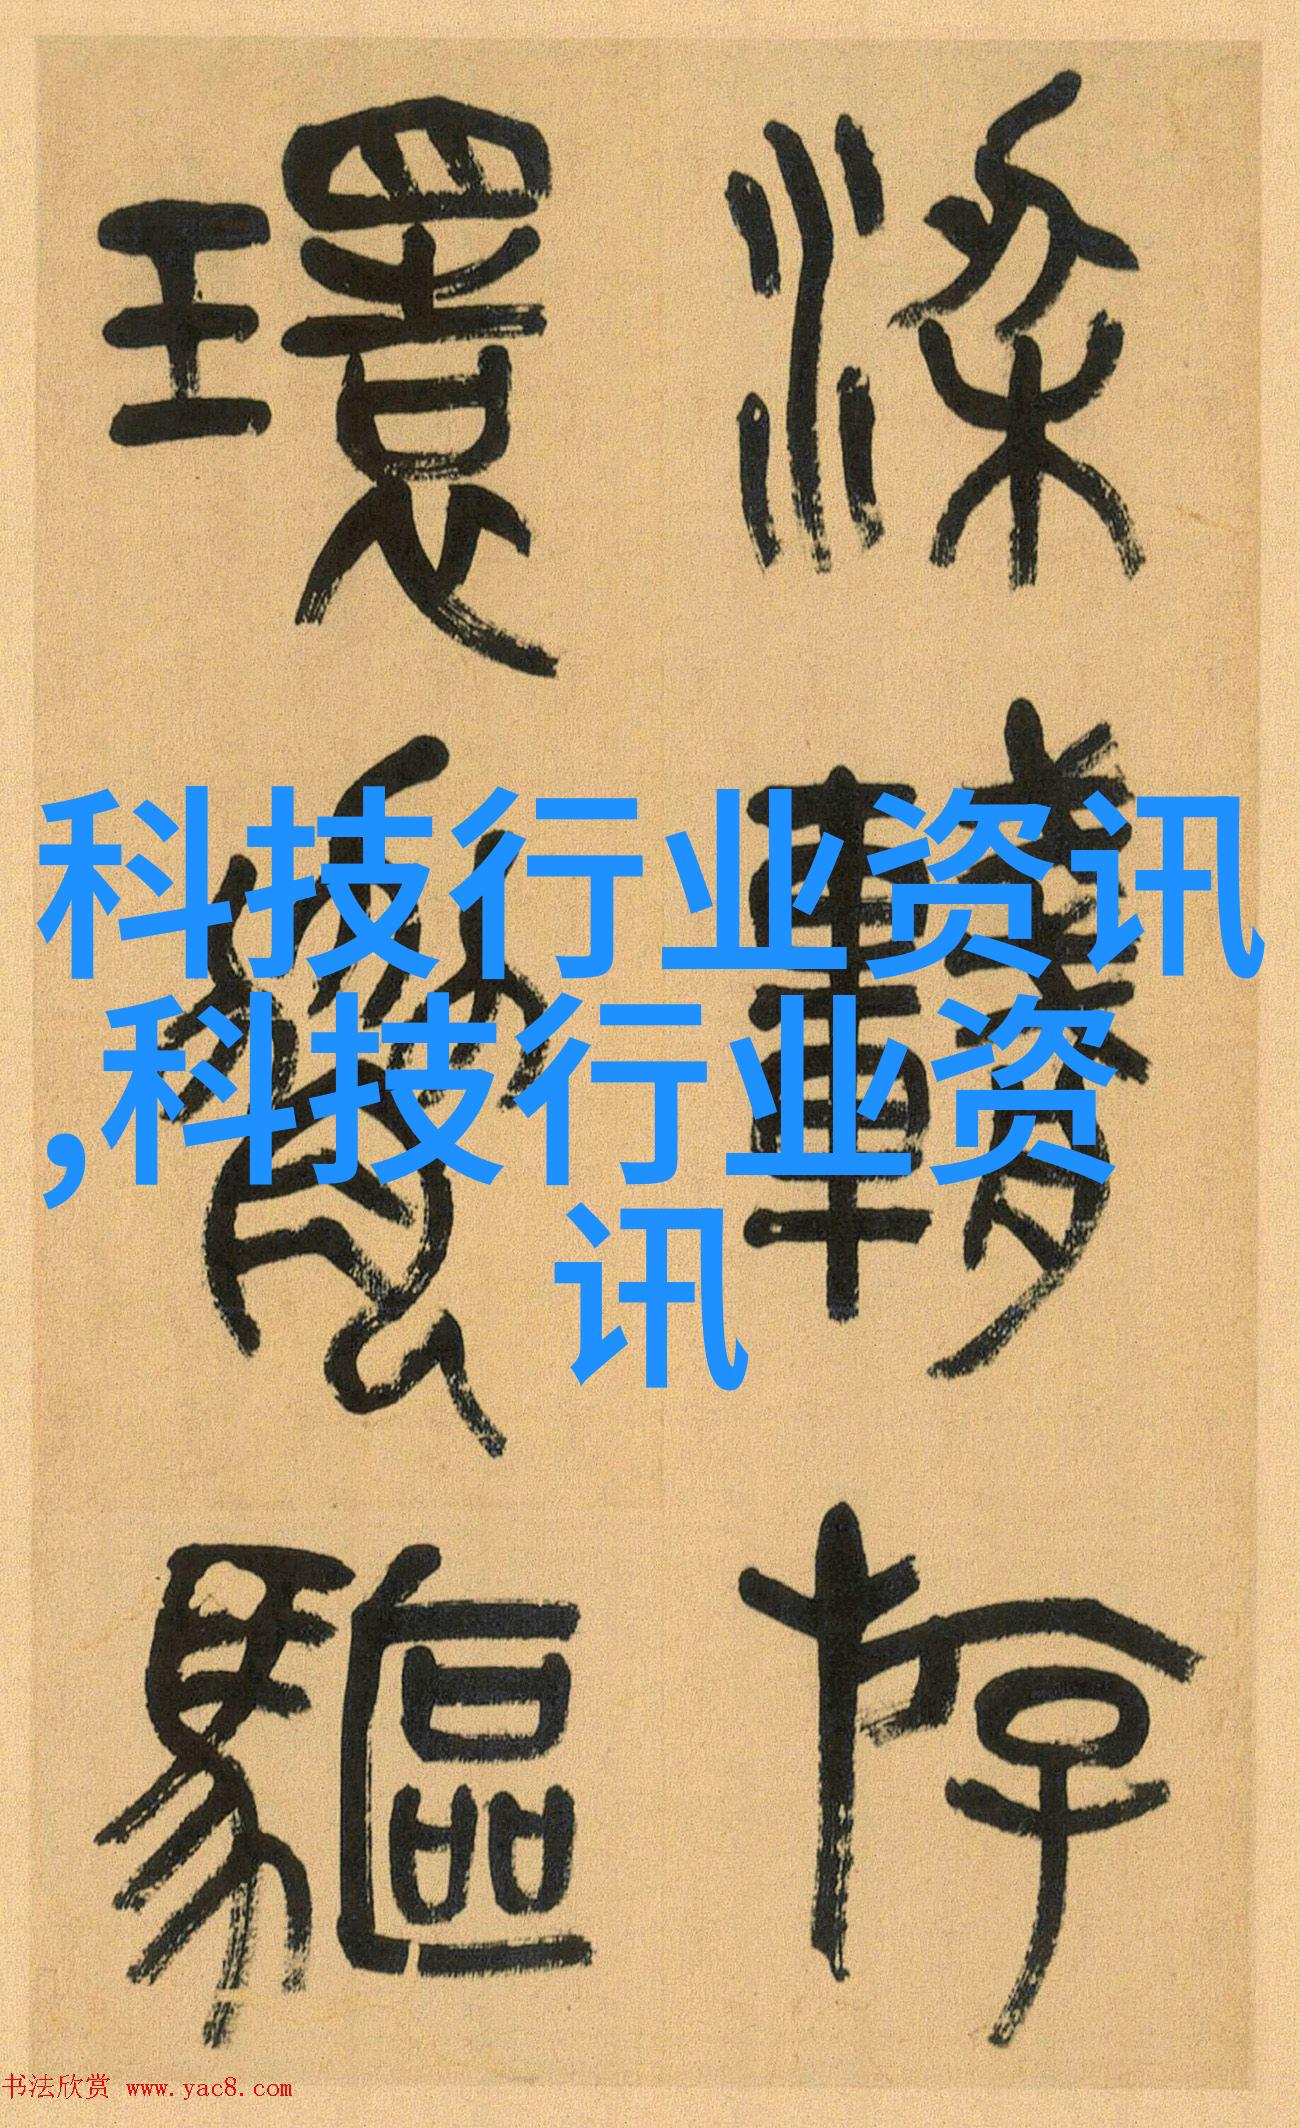 環
驅
科技行业资讯
,科技行业资
讯
书法欣赏 www.yac8.com